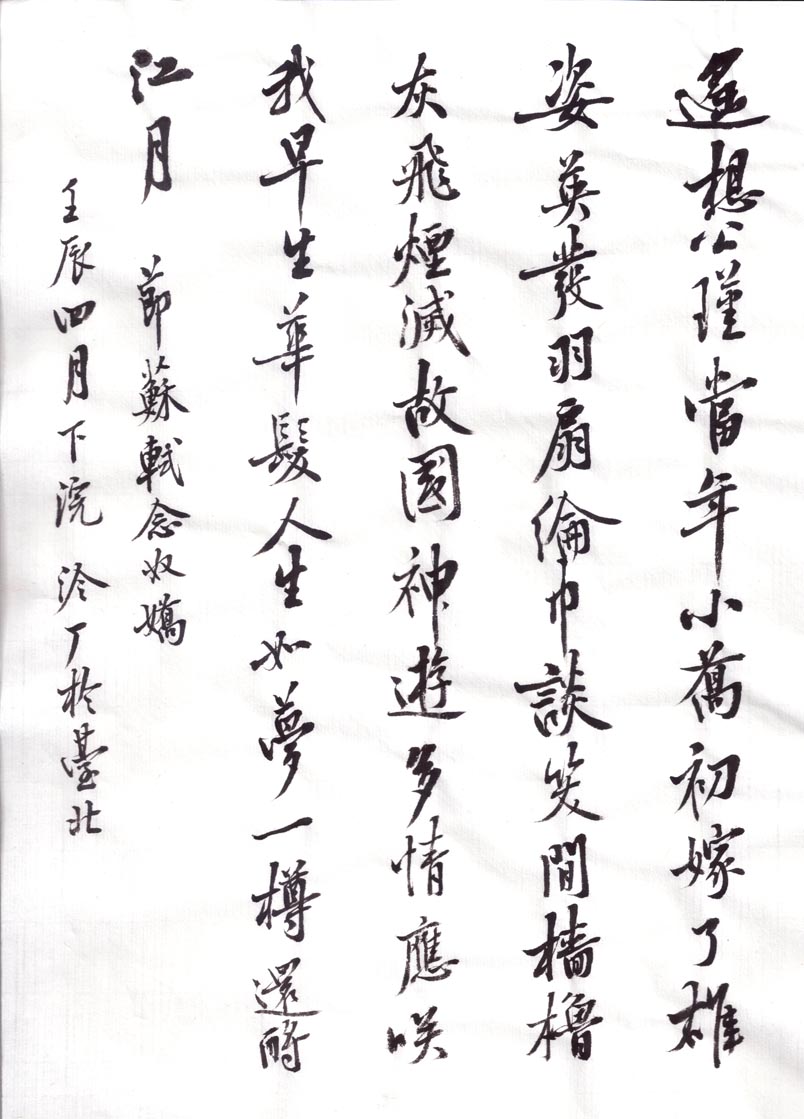 遙想公瑾當年小喬初嫁了雄
姿英發羽扇綸巾談笑間檣櫓
灰飛煙滅故國神遊多情應咲
我早生華髮人生如夢一樽還酹
江月 節蘇軾念奴嬌
壬辰四月下浣 泠丁於臺北